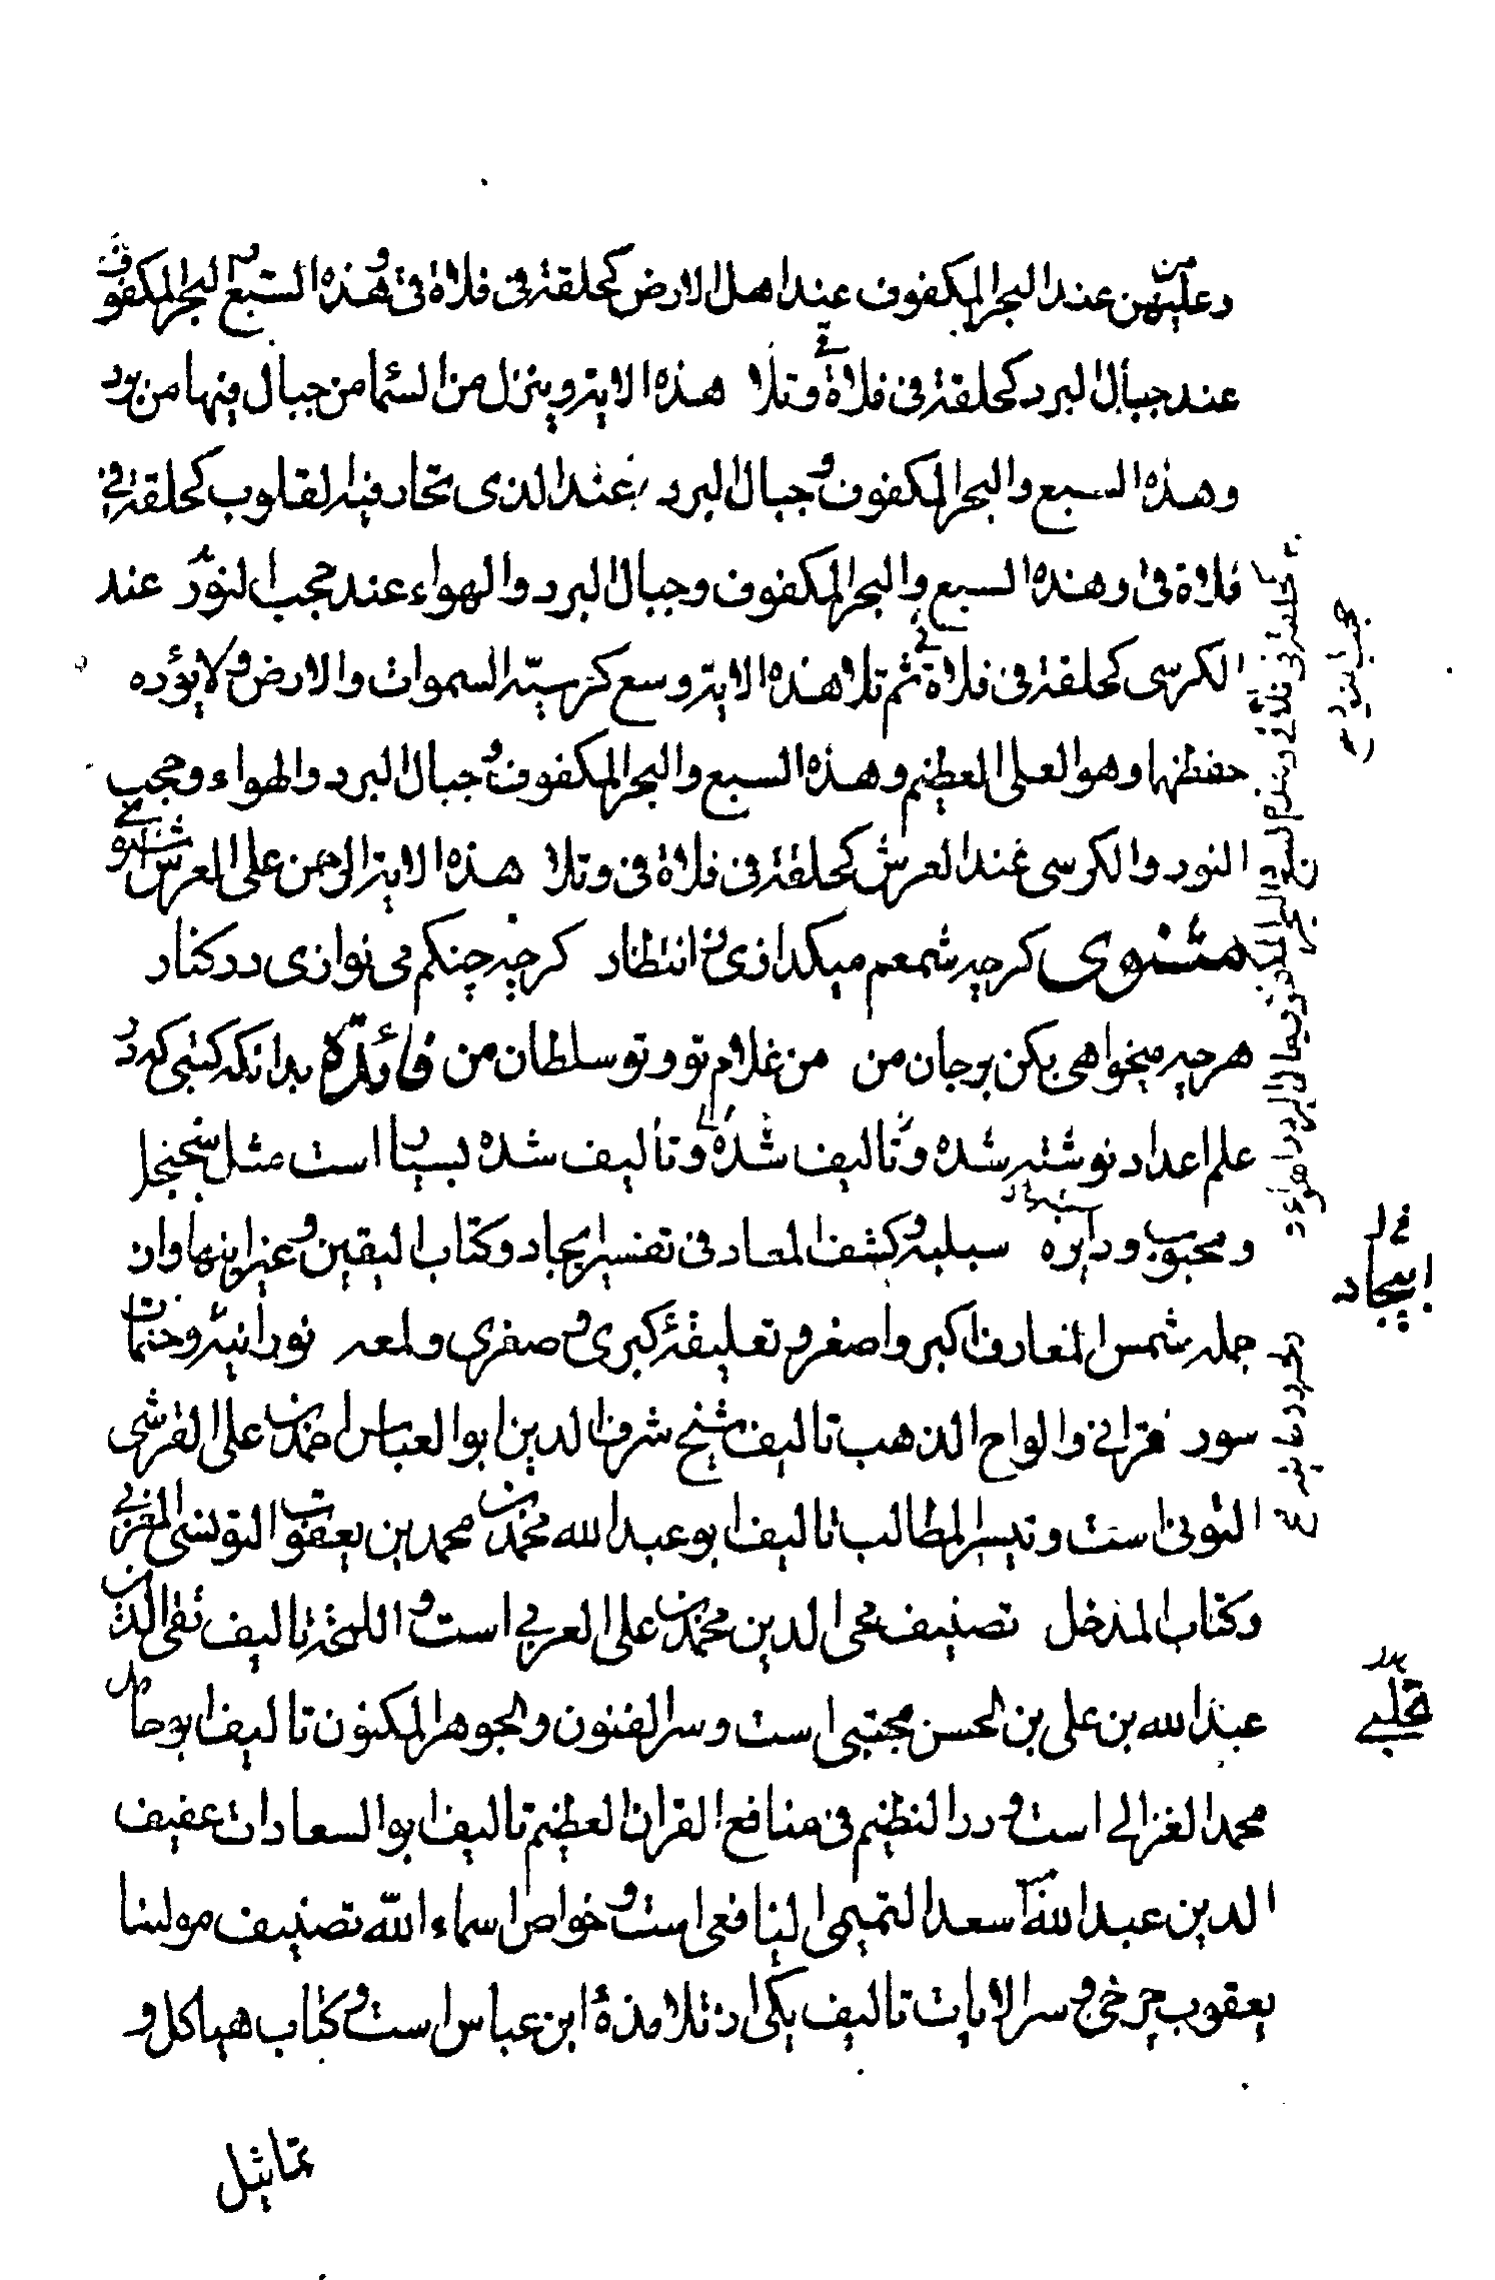 و علیهن من عند البحر المکفوف عند اهل الارض کحلقة فی فلاة قی و هذه السبع و البحر المکفوف
عند جبال البرد کحلقة فی فلاة قی و تلا هذه الایة و ینزل من السما من جبال فیها من برد
و هذه السبع و البحر المکفوف و جبال البرد عند الذی تحار فیه القلوب کحلقة فی
فلاة قی و هذه السبع و البحر المکفوف و جبال البرد و الهواء عند حجب النور عند
الکرسی کحلقة فی فلاة قی ثم تلا هذه الایة وسع کرسیه السموات و الارض و لا یؤده
حفظهما و هو العلی العظیم و هذه السبع و البحر المکفوف و جبال البرد و الهواء و حجب
النور و الکرسی عند العرش کحلقة فی فلاة قی و تلا هذه الایة الرحمن علی العرش استوی
مثنوی کرچه شمعم میکدازی ز انتظار کرچه چنکم می نوازی در کنار
هر چه میخواهی بکن بر جان من من غلام تو و تو سلطان من فائدة بدانکه کتبی که در
علم اعداد نوشته شده و تالیف شده و تألیف شده بسیار است مثل سجنجل
و محبوب و دایره سبلیه و کشف المعاد فی تفسیر ایجاد و کتاب الیقین و غیر اینها و از
جمله شمس المعارف اکبر و اصغر و تعلیقۀ کبری و صغری و لمعه نورانیه و ختمات
سور قرانی و الواح الذهب تالیف شیخ شرف الدین ابوالعباس احمد بن علی القرشی
التونی است و تیسیر المطالب تالیف ابو عبد الله محمد بن محمد بن یعقوب التونسی المغربی
و کتاب المدخل تصنیف محی الدین محمد بن علی العربی است و اللمحة تالیف تقی الدین
عبد الله بن علی بن الحسن مجتبی است و سر الفنون و الجوهر المکنون تالیف ابو حامد
محمد الغزالی است و در النظیم فی منافع القران العظیم تالیف ابو السعادات عفیف
الدین عبد الله اسعد التمیمی الیافعی است و خواص اسماء الله تصنیف مولینا
یعقوب چرخی و سر الایات تالیف یکی از تلامذۀ ابن عباس است و کتاب هیاکل و
تماثیل
ایجاد